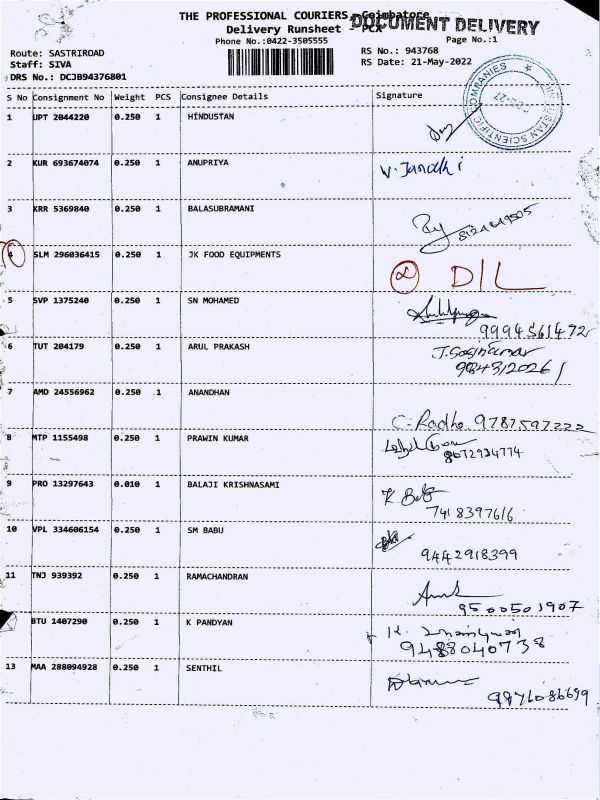 THE PROFESSIONAL COURIERS, Coimbatore
DOCUMENT DELIVERY
Delivery Runsheet - PCX
Phone No.:0422-3505555
Page No.:1
Route: SASTRIROAD
RS No.: 943768
Staff: SIVA
RS Date: 21-May-2022
DRS No.: DCJB94376801
S No Consignment No Weight PCS Consignee Details Signature
1 UPT 2044220 0.250 1 HINDUSTAN
2 KUR 693674074 0.250 1 ANUPRIYA
3 KRR 5369840 0.250 1 BALASUBRAMANI
4 SLM 296036415 0.250 1 JK FOOD EQUIPMENTS D/L
5 SVP 1375240 0.250 1 SN MOHAMED
9994561472
6 TUT 204179 0.250 1 ARUL PRAKASH
7 AMD 24556962 0.250 1 ANANDHAN
C. Radha 9787597222
8 MTP 1155498 0.250 1 PRAWIN KUMAR
9 PRO 13297643 0.010 1 BALAJI KRISHNASAMI
7418397616
10 VPL 334606154 0.250 1 SM BABU
9442918399
11 TNJ 939392 0.250 1 RAMACHANDRAN
9500501907
BTU 1407290 0.250 1 K PANDYAN
9488040738
13 MAA 288094928 0.250 1 SENTHIL